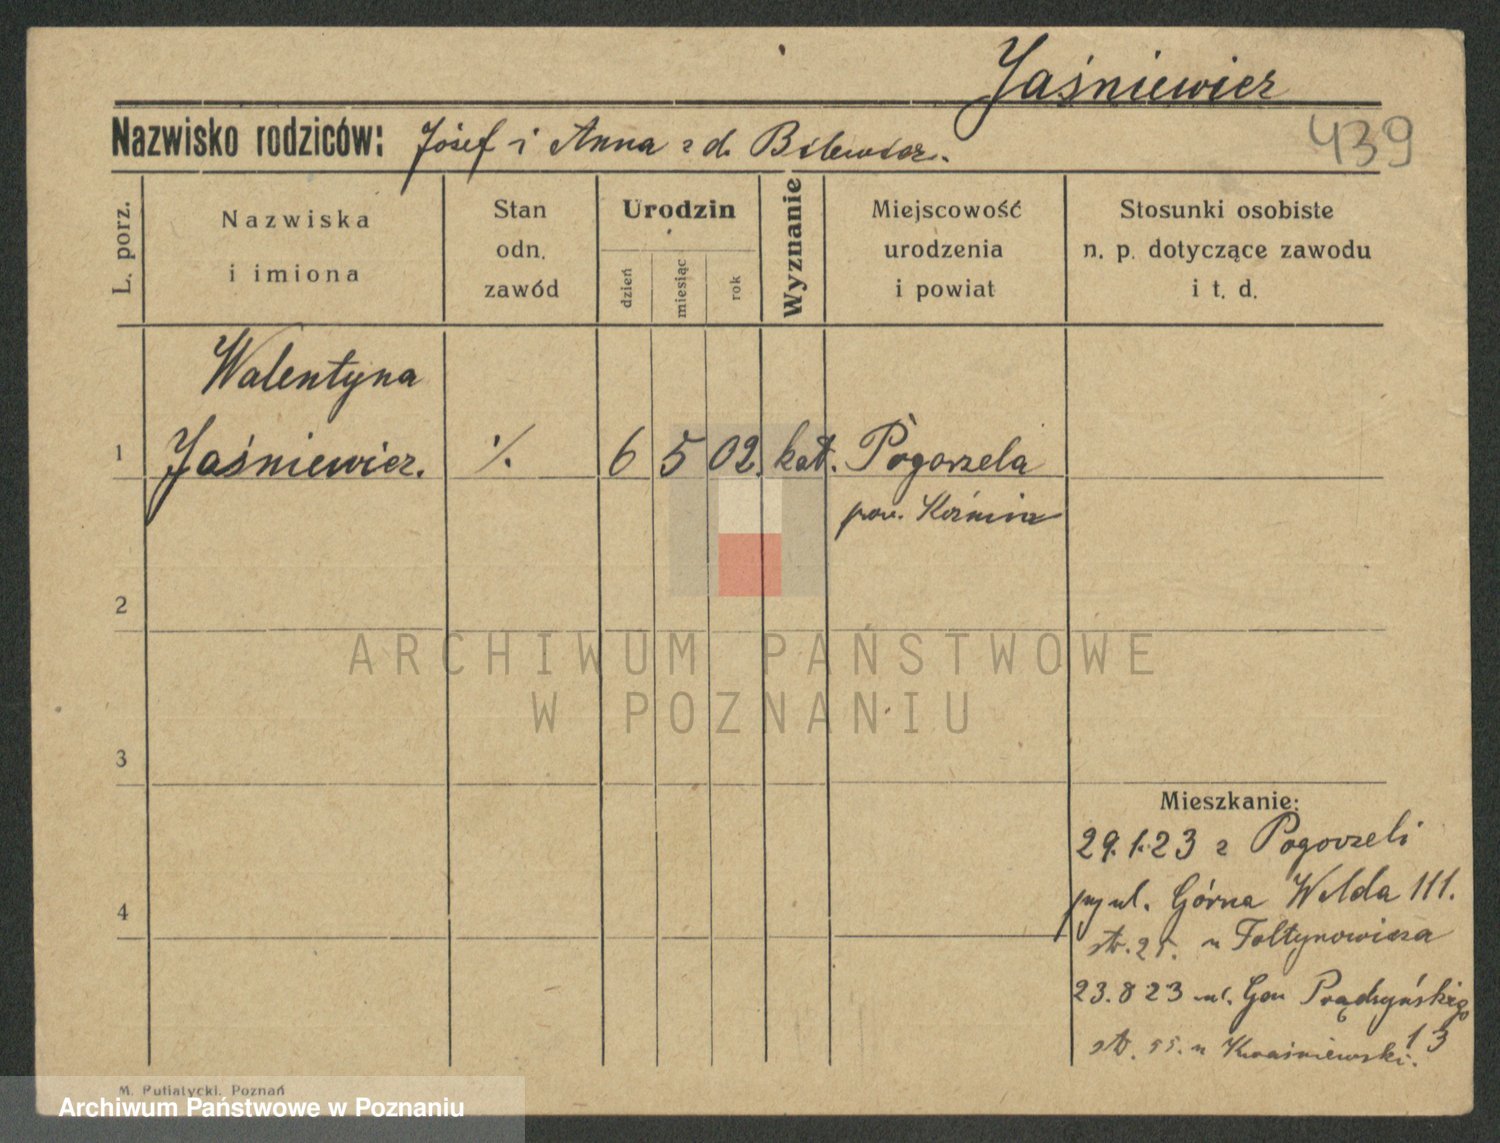 Jaśniewicz
439
Nazwisko rodziców: Józef i Anna z d. Bilewicz.
L. porz.
Nazwiska
i imiona
Stan
odn.
zawód
Urodzin
dzień
miesiąc
rok
Wyznanie
Miejscowość
urodzenia
i powiat
Stosunki osobiste
n. p. dotyczące zawodu
i t. d.
Walentyna
1 Jaśniewicz. ·/. 6 5 02. kat. Pogorzela
pow. Koźmin
2
ARCHIWUM PAŃSTWOWE
W POZNANIU
3
Mieszkanie:
29.1.23 z Pogorzeli
ul. Górna Wilda 111.
4
str. 25. u Foltynowicza
23.8 23 ul. Gen Prądzyńskiego
13
str. 55. u Kwaśniewski.
M. Putiatycki, Poznań
Archiwum Państwowe w Poznaniu